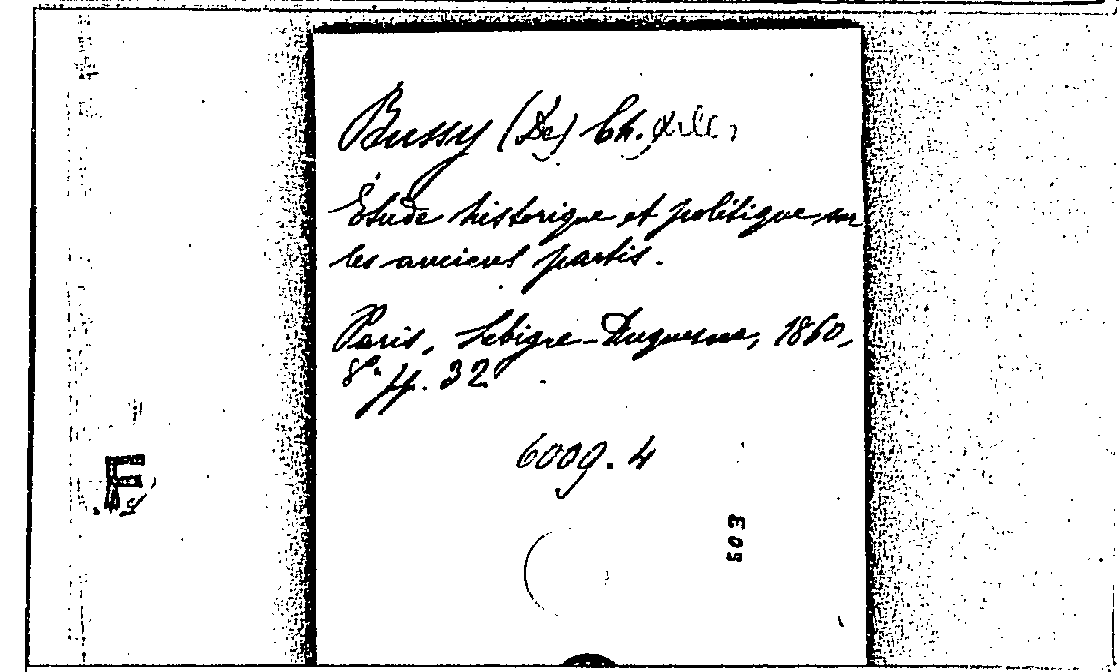 Bussy (De) Ch.
Étude historique et politique sur
les anciens partis.
Paris, Lebigre-Duquesne, 1860.
8º. pp. 32.
6009.4
503
F